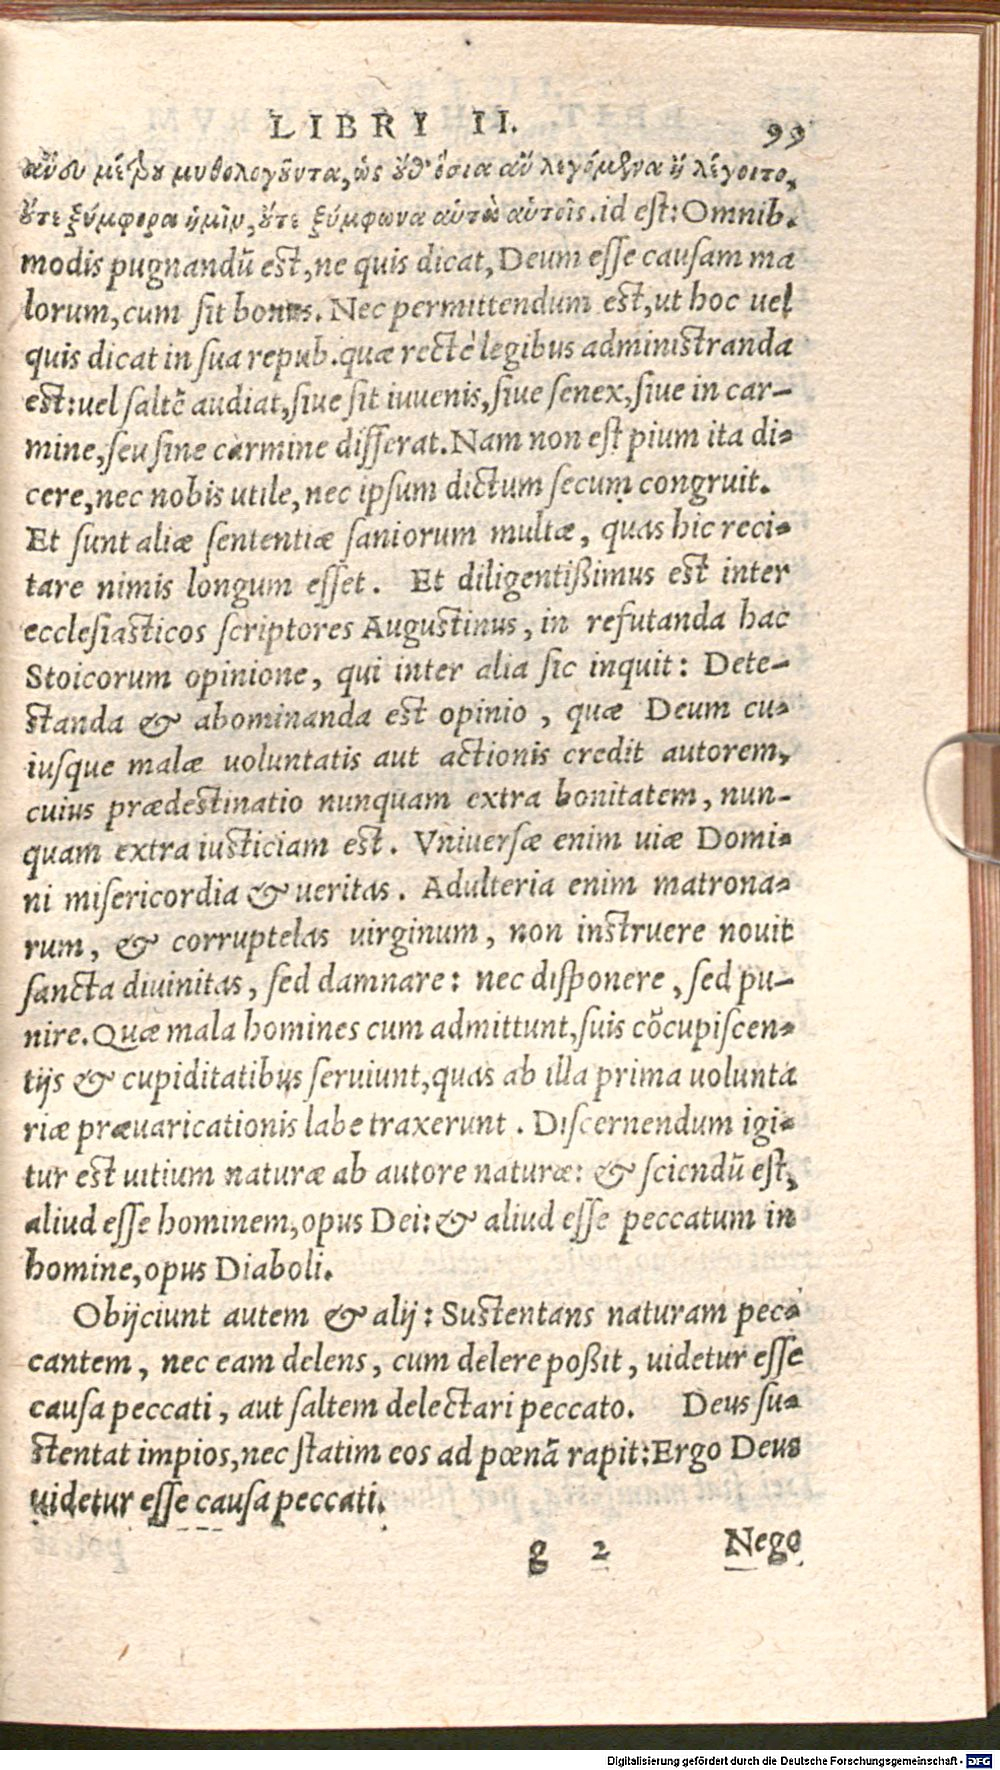 LIBRI II. 99
ἄνευ μέτρου μυθολογοῦντα, ὡς οὔθ' ὅσια ἂν λεγόμενα εἰ λέγοιτο,
οὔτε ξύμφορα ἡμῖν, οὔτε ξύμφωνα αὐτὰ αὑτοῖς. id est: Omnib.
modis pugnandū est, ne quis dicat, Deum esse causam ma
lorum, cum sit bonus. Nec permittendum est, ut hoc uel
quis dicat in sua repub. quæ rectè legibus administranda
est: uel saltē audiat, siue sit iuuenis, siue senex, siue in car-
mine, seu sine carmine differat. Nam non est pium ita di-
cere, nec nobis utile, nec ipsum dictum secum congruit.
Et sunt aliæ sententiæ saniorum multæ, quas hic reci-
tare nimis longum esset. Et diligentißimus est inter
ecclesiasticos scriptores Augustinus, in refutanda hac
Stoicorum opinione, qui inter alia sic inquit: Dete-
standa & abominanda est opinio, quæ Deum cu-
iusque malæ uoluntatis aut actionis credit autorem,
cuius prædestinatio nunquam extra bonitatem, nun-
quam extra iusticiam est. Vniuersæ enim uiæ Domi-
ni misericordia & ueritas. Adulteria enim matrona-
rum, & corruptelas uirginum, non instruere nouit
sancta diuinitas, sed damnare: nec disponere, sed pu-
nire. Quæ mala homines cum admittunt, suis cōcupiscen-
tijs & cupiditatibus seruiunt, quas ab illa prima uolunta
riæ præuaricationis labe traxerunt. Discernendum igi-
tur est uitium naturæ ab autore naturæ: & sciendū est,
aliud esse hominem, opus Dei: & aliud esse peccatum in
homine, opus Diaboli.
Obijciunt autem & alij: Sustentans naturam pec-
cantem, nec eam delens, cum delere poßit, uidetur esse
causa peccati, aut saltem delectari peccato. Deus su-
stentat impios, nec statim eos ad pœnā rapit: Ergo Deus
uidetur esse causa peccati.
g 2 Nego
Digitalisierung gefördert durch die Deutsche Forschungsgemeinschaft - DFG